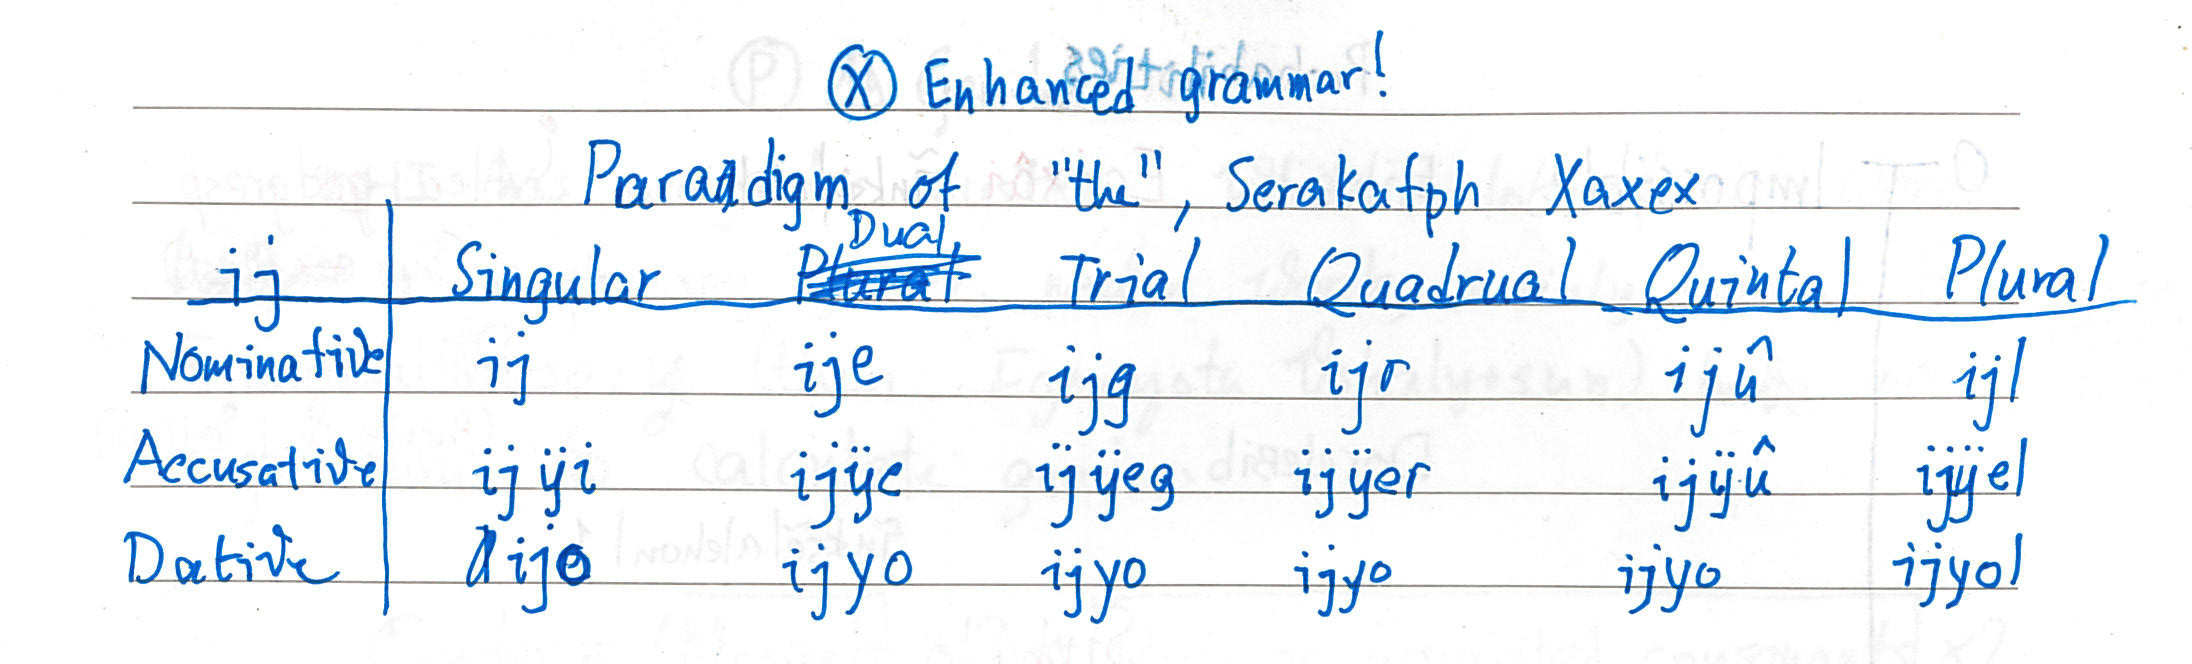 Ⓧ Enhanced grammar!
Paradigm of "the", Serakafph Xaxex
ij Singular Dual Trial Quadrual Quintal Plural
Nominative ij ije ijg ijr ijû ijl
Accusative ijÿi ijÿe ijÿeg ijÿer ijÿû ijÿel
Dative ijo ijyo ijyo ijyo ijyo ijyol